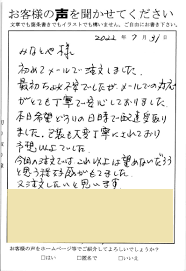 お客様の声を聞かせてください
文章でも箇条書きでもイラストでも構いません。ご自由にお書き下さい。
2022年7月31
みなとや様
初めてメールで注文しました。
最初ちょっと不安でしたがメールでの対応が
とても丁寧で安心しておりました。
本日希望どおりの日時で配達受取り
ました。包装も大変丁寧にされており
予想以上でした。
今回の注文ではこれ以上は望めないだろう
と思う程満足感がもてました。
又注文したいと思います。
お客様の声をホームページ等でご紹介してよろしいでしょうか?
□はい □匿名で □いいえ